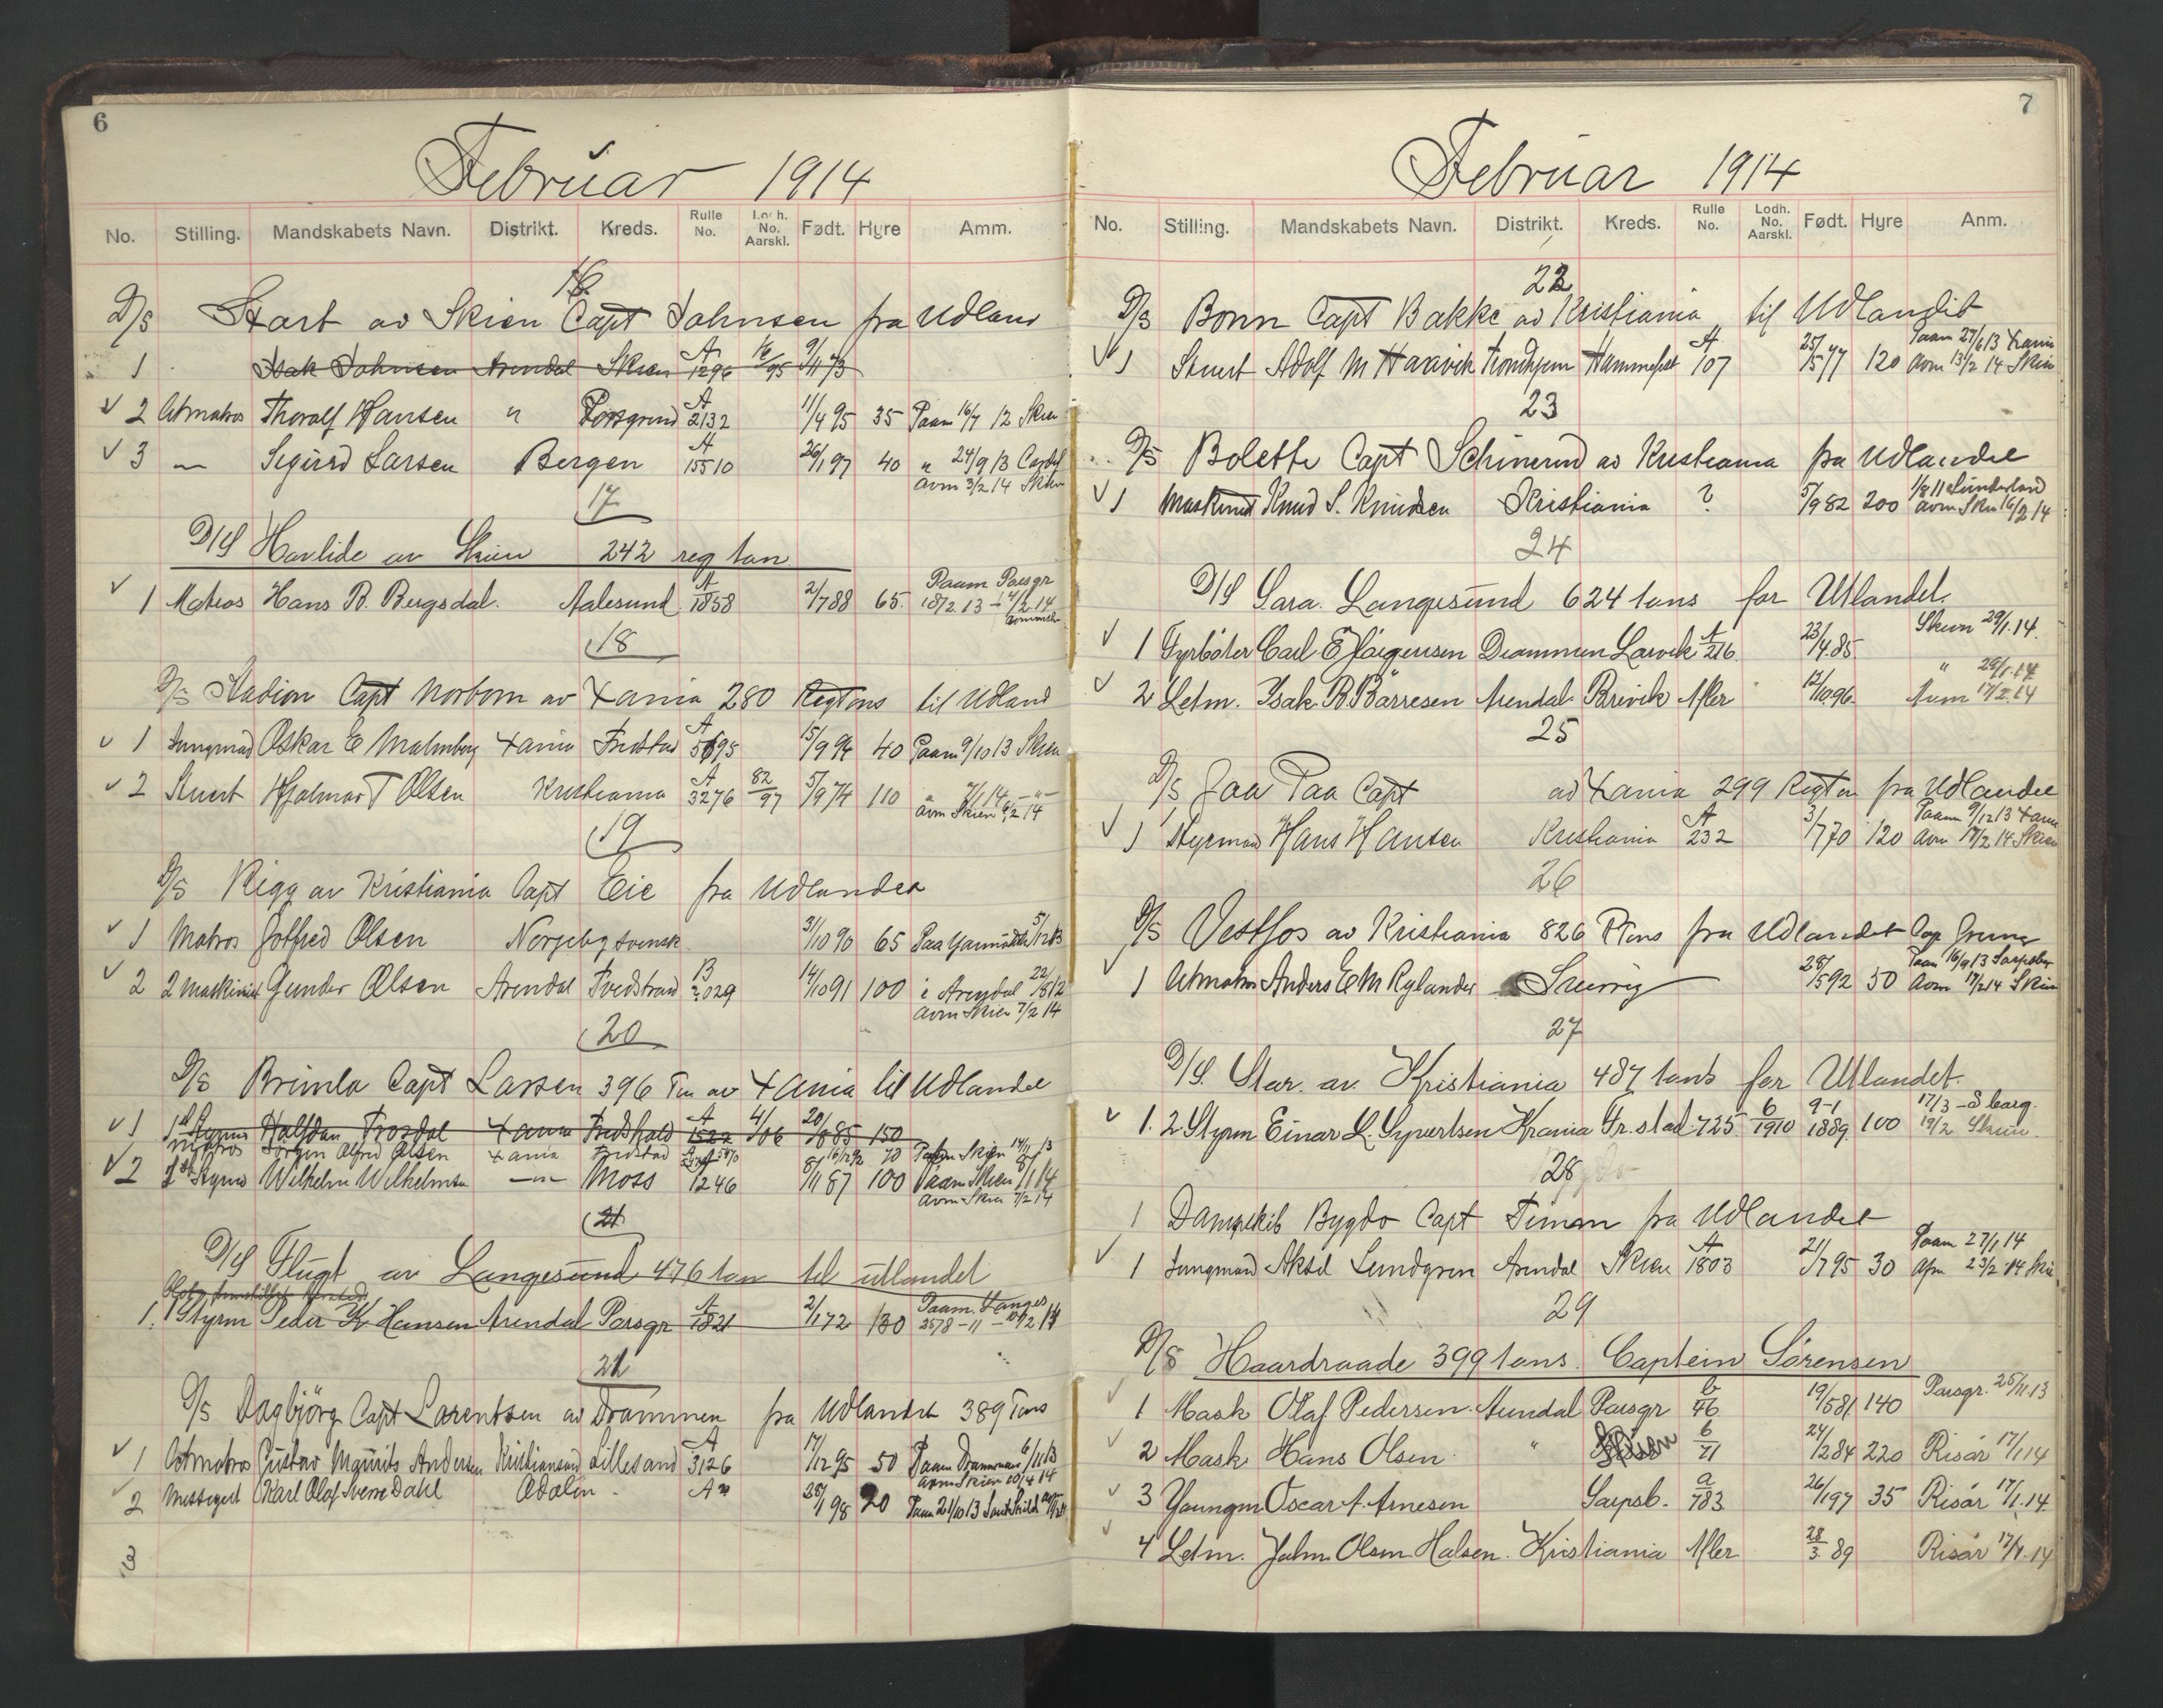 6
Februar 1914
No. Stilling. Mandskabets Navn. Distrikt. Kreds. Rulle No. Lodh. No. Aarskl. Født. Hyre Amm.
16
D/S Start av Skien Capt Johnsen fra Udland
1 Isak Johnsen Arendal Skien A 1296 95
v 2 Letmatros Thoralf Hansen " Porsgrund A 2132 11/4 95 35 Paam 16/7 12 Skien
v 3 — Sigurd Larsen Bergen A 15510 26/1 97 40 " 24/9 13 Cardif
avm 3/2 14 Skien
17
D/S Havlide av Skien 242 reg ton
v 1 Matros Hans B. Bergsdal. Aalesund A 1858 2/7 88 65. Paam Porsgr
18/2 13 - 4/2 14
18
D/S Stadion Capt Norbom av Xania 280 RegTons til Udland
v 1 Jungmand Oskar E Malmberg Xania Fredstad A 5695 15/9 94 40 Paam 9/10 13 Skien
v 2 Stuert Hjalmar T Olsen Kristiania A 3276 82/97 5/9 74 110 " 7/1 14 — " —
avm Skien 6/2 14
19
D/S Rigg av Kristiania Capt Eie fra Udlandet
v 1 Matros Gotfred Olsen Norgebysvensk 31/10 90 65 Paa Yarmouth 5/12 13
v 2 2 Maskinist Gunder Olsen Arendal Tvedstrand B 2029 14/10 91 100 i Arendal 22/8 12
avm Skien 7/2 14
20
D/S Brimla Capt Larsen 396 Tm av Xania til Udlandet
v 1 1st Styrm Halfdan Trosdal Xania Fredshald A 1522 4/06 20/8 85 150
Matros Jörgen Alfred Olsen Xania Fredstad 16/12 92 70 Paam Skien 14/11 13
v 2 1st Styrm Wilhelm Wilhelmsen — " — Moss A 1246 8/11 87 100 Paam Skien 8/1 14
avm Skien 7/2 14
21
D/S Flugt av Langesund 476 ton til utlandet
1. 1 Styrm Peder K Hansen Arendal Porsgr A 1821 2/1 72 130 Paam. Langes
25/8 - 11 - 10/2 14
21
D/S Dagbjörg Capt Lorentsen av Drammen fra Udlandet 389 Tons
v 1 Letmatros Gustav Mauritz Andersen Kristiansand Lillesand A 3126 17/12 95 50 Paam Drammen 6/11 13
avm Skien
2 Messegut Karl Olaf Sverre Dahl Adalen A " 28/1 98 20 Paam 21/10 13
3
7
Februar 1914
No. Stilling. Mandskabets Navn. Distrikt. Kreds. Rulle No. Lodh. No. Aarskl. Født. Hyre Anm.
22
D/S Bonn Capt Bakke av Kristiania til Udlandet
v 1 Stuert Adolf M Haavik Trondhjem Hammefest A 107 25/5 77 120 Paam 27/6 13 Xania
avm 13/2 14 Skien
23
D/S Bolette Capt Schinerud av Kristiania fra Udlandet
v 1 Maskinist Knud S. Knudsen Kristiania ? 5/9 82 200 1/8 11 Sunderland
avm Skien 16/2 14
24
D/S Sara. Langesund 624 tons for Utlandet.
v 1 Fyrböter Carl E Jörgensen Drammen Larvik A 216. 23/4 85. Skien 29/1. 14.
v 2 Letm. Isak. B. Börresen Arendal Brevik After 12/10 96. " 29/1. 14
Avm 17/2. 14
25
D/S Jaa Paa Capt av Xania 299 RegTon fra Udlandet
v 1 Styrmand Hans Hansen Kristiania A 232 3/7 70 120 Paam 9/12 13 Xania
avm 17/2 14 Skien
26
D/S Vestfos av Kristiania 826 RTons fra Udlandet Cap
v 1 Letmatros Anders E M Rylander Sverrig 28/5 92 50 Paam 16/9 13 Sarpsborg
Avm 17/2 14 Skien
27
D/S. Star. av. Kristiania 487 tons for Utlandet.
v 1. 2 Styrm Einar L. Syvertsen Krania Fr.stad 725. 6/1910 9-1 1889 100 17/3 - S barg.
19/2 Skien.
28
1 Dampskib Bygdo Capt Timan fra Udlandet
v 1 Jungmand Aksel Lundgren Arendal Skien A 1803 21/7 95 30 Paam 27/1 14
Afm 23/2 14 Skie
29
D/S Haardraade 399 tons. Captein Sörensen
v 1 Mask Olaf Pedersen. Arendal Porsgr b/46 19/5 81 140 Porsgr. 25/11. 13
v 2 Mask Hans Olsen. " b/71 24/2 84 220 Risör 17/1 14
v 3 Youngm Oscar A. Arnesen Sarpsb. a/783 26/1 97 35 Risör 17/1. 14.
v 4 Letm. John. Olsen Halsen. Kristiania After 28/3. 89 Risör 17/1. 14